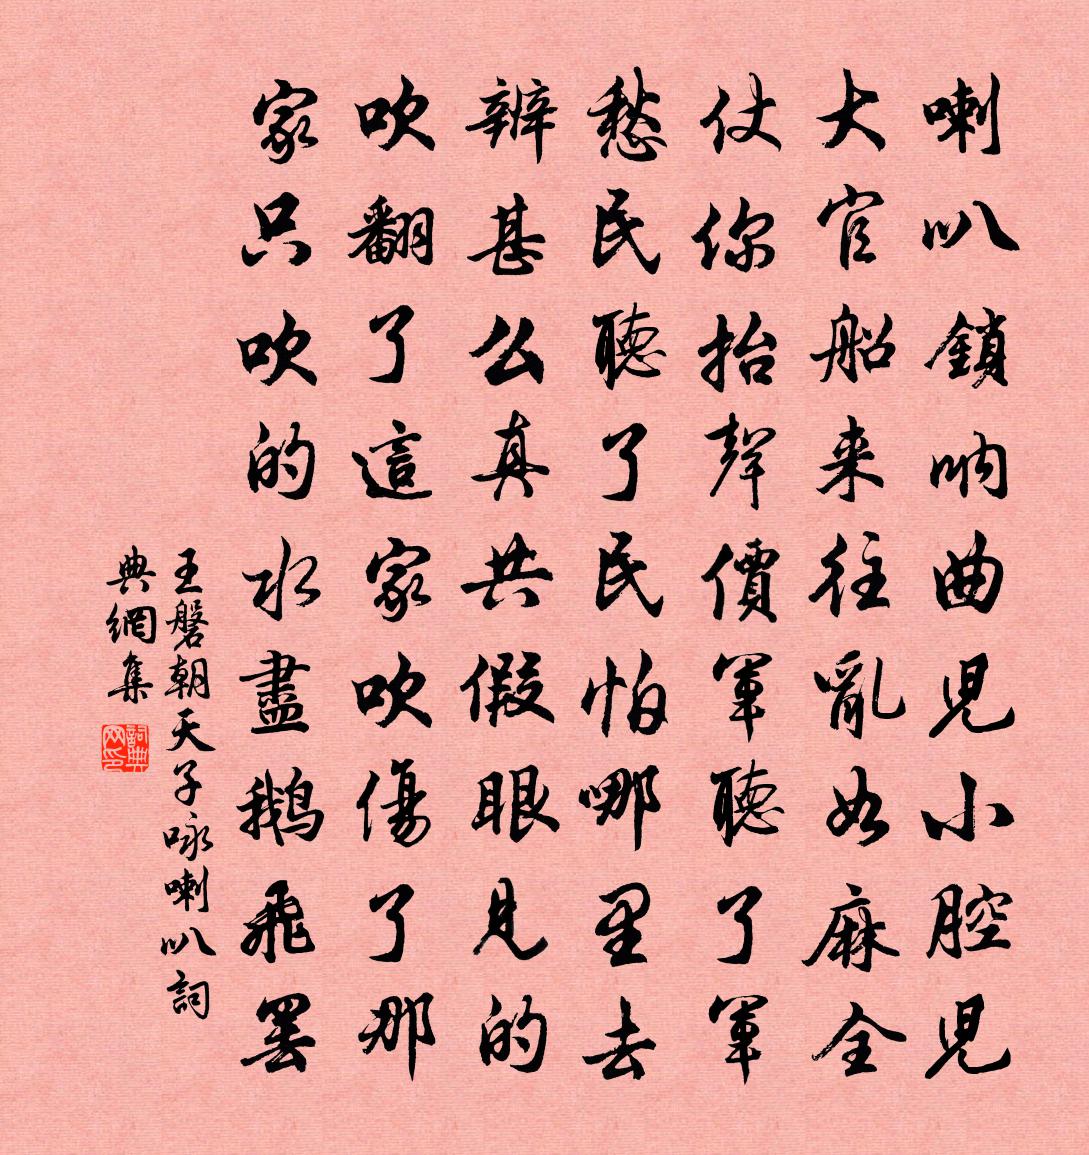 喇叭鎖吶曲児小腔児
大官船来往亂如麻全
仗你抬聲價軍聽了軍
愁民聽了民怕哪里去
辨甚么真共假眼見的
吹翻了這家吹傷了那
家只吹的水盡鵝飛罷
王磐朝天子咏喇叭詞
典網集
詞典網印